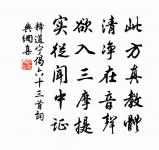 此方真教體
清净在音聲
欲入三摩提
实從闻中证
釋道宁偈六十三首詞
典網集